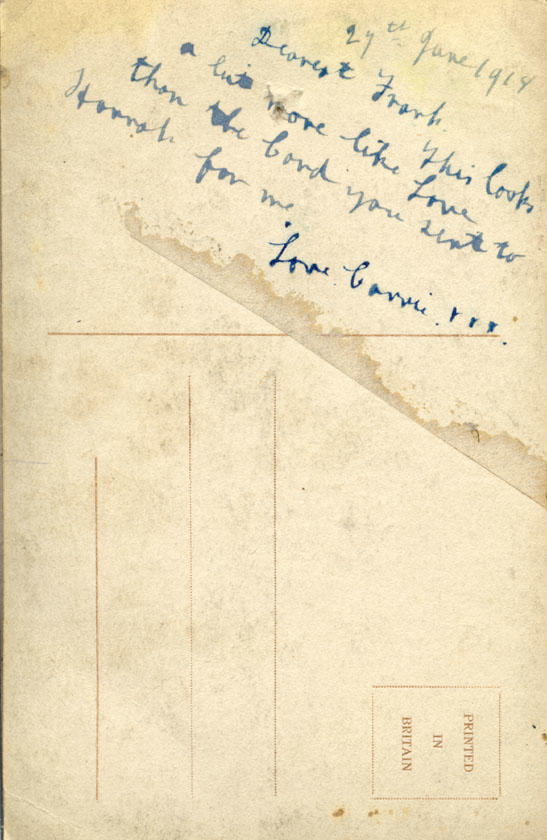 29th June 1918
Dearest Frank
This looks
a bit more like Love
than the Card you sent to
Hannah for me.
Love Carrie. xxx.
PRINTED
IN
BRITAIN